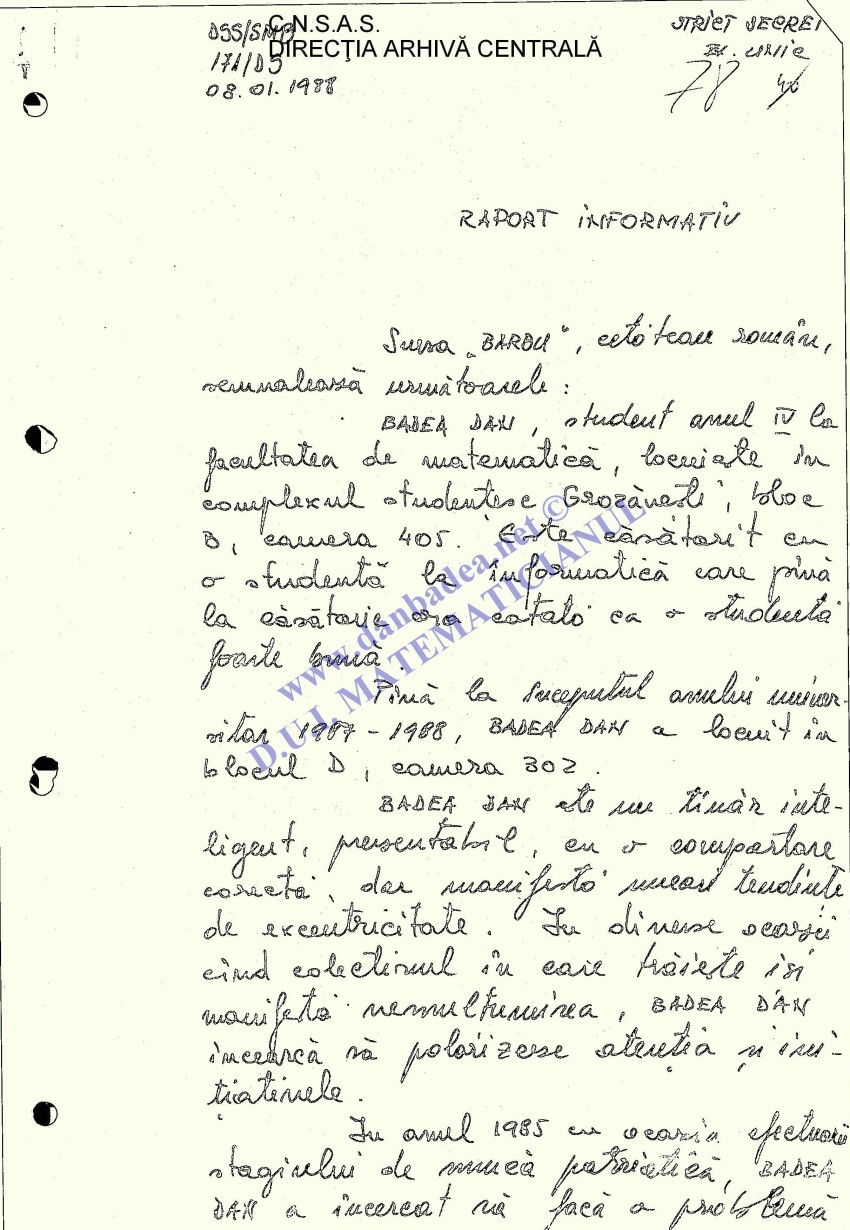 C.N.S.A.S.
DIRECŢIA ARHIVĂ CENTRALĂ
DSS/SMB
171/D5
08.01.1988
STRICT SECRET
EX. UNIC
78
RAPORT INFORMATIV
Sursa „BARBU", cetățean român,
semnalează următoarele :
BADEA DAN, student anul IV la
facultatea de matematică, locuiește în
complexul studentesc Grozăvești, bloc
B, camera 405. Este căsătorit cu
o studentă la informatică care pînă
la căsătorie era cotată ca o studentă
foarte bună.
Pînă la începutul anului univer-
sitar 1987-1988, BADEA DAN a locuit în
blocul D, camera 302.
BADEA DAN este un tînăr inte-
ligent, prezentabil, cu o comportare
corectă, dar manifestă uneori tendințe
de excentricitate. In diverse ocazii
cînd colectivul în care trăiește isi
manifestă nemulțumirea, BADEA DAN
încearcă să polarizeze atenția și ini-
țiativele.
In anul 1985 cu ocazia efectuării
stagiului de muncă patriotică, BADEA
DAN a încercat să facă o problemă
www.danbadea.net ©
D.U.I. MATEMATICIANUL